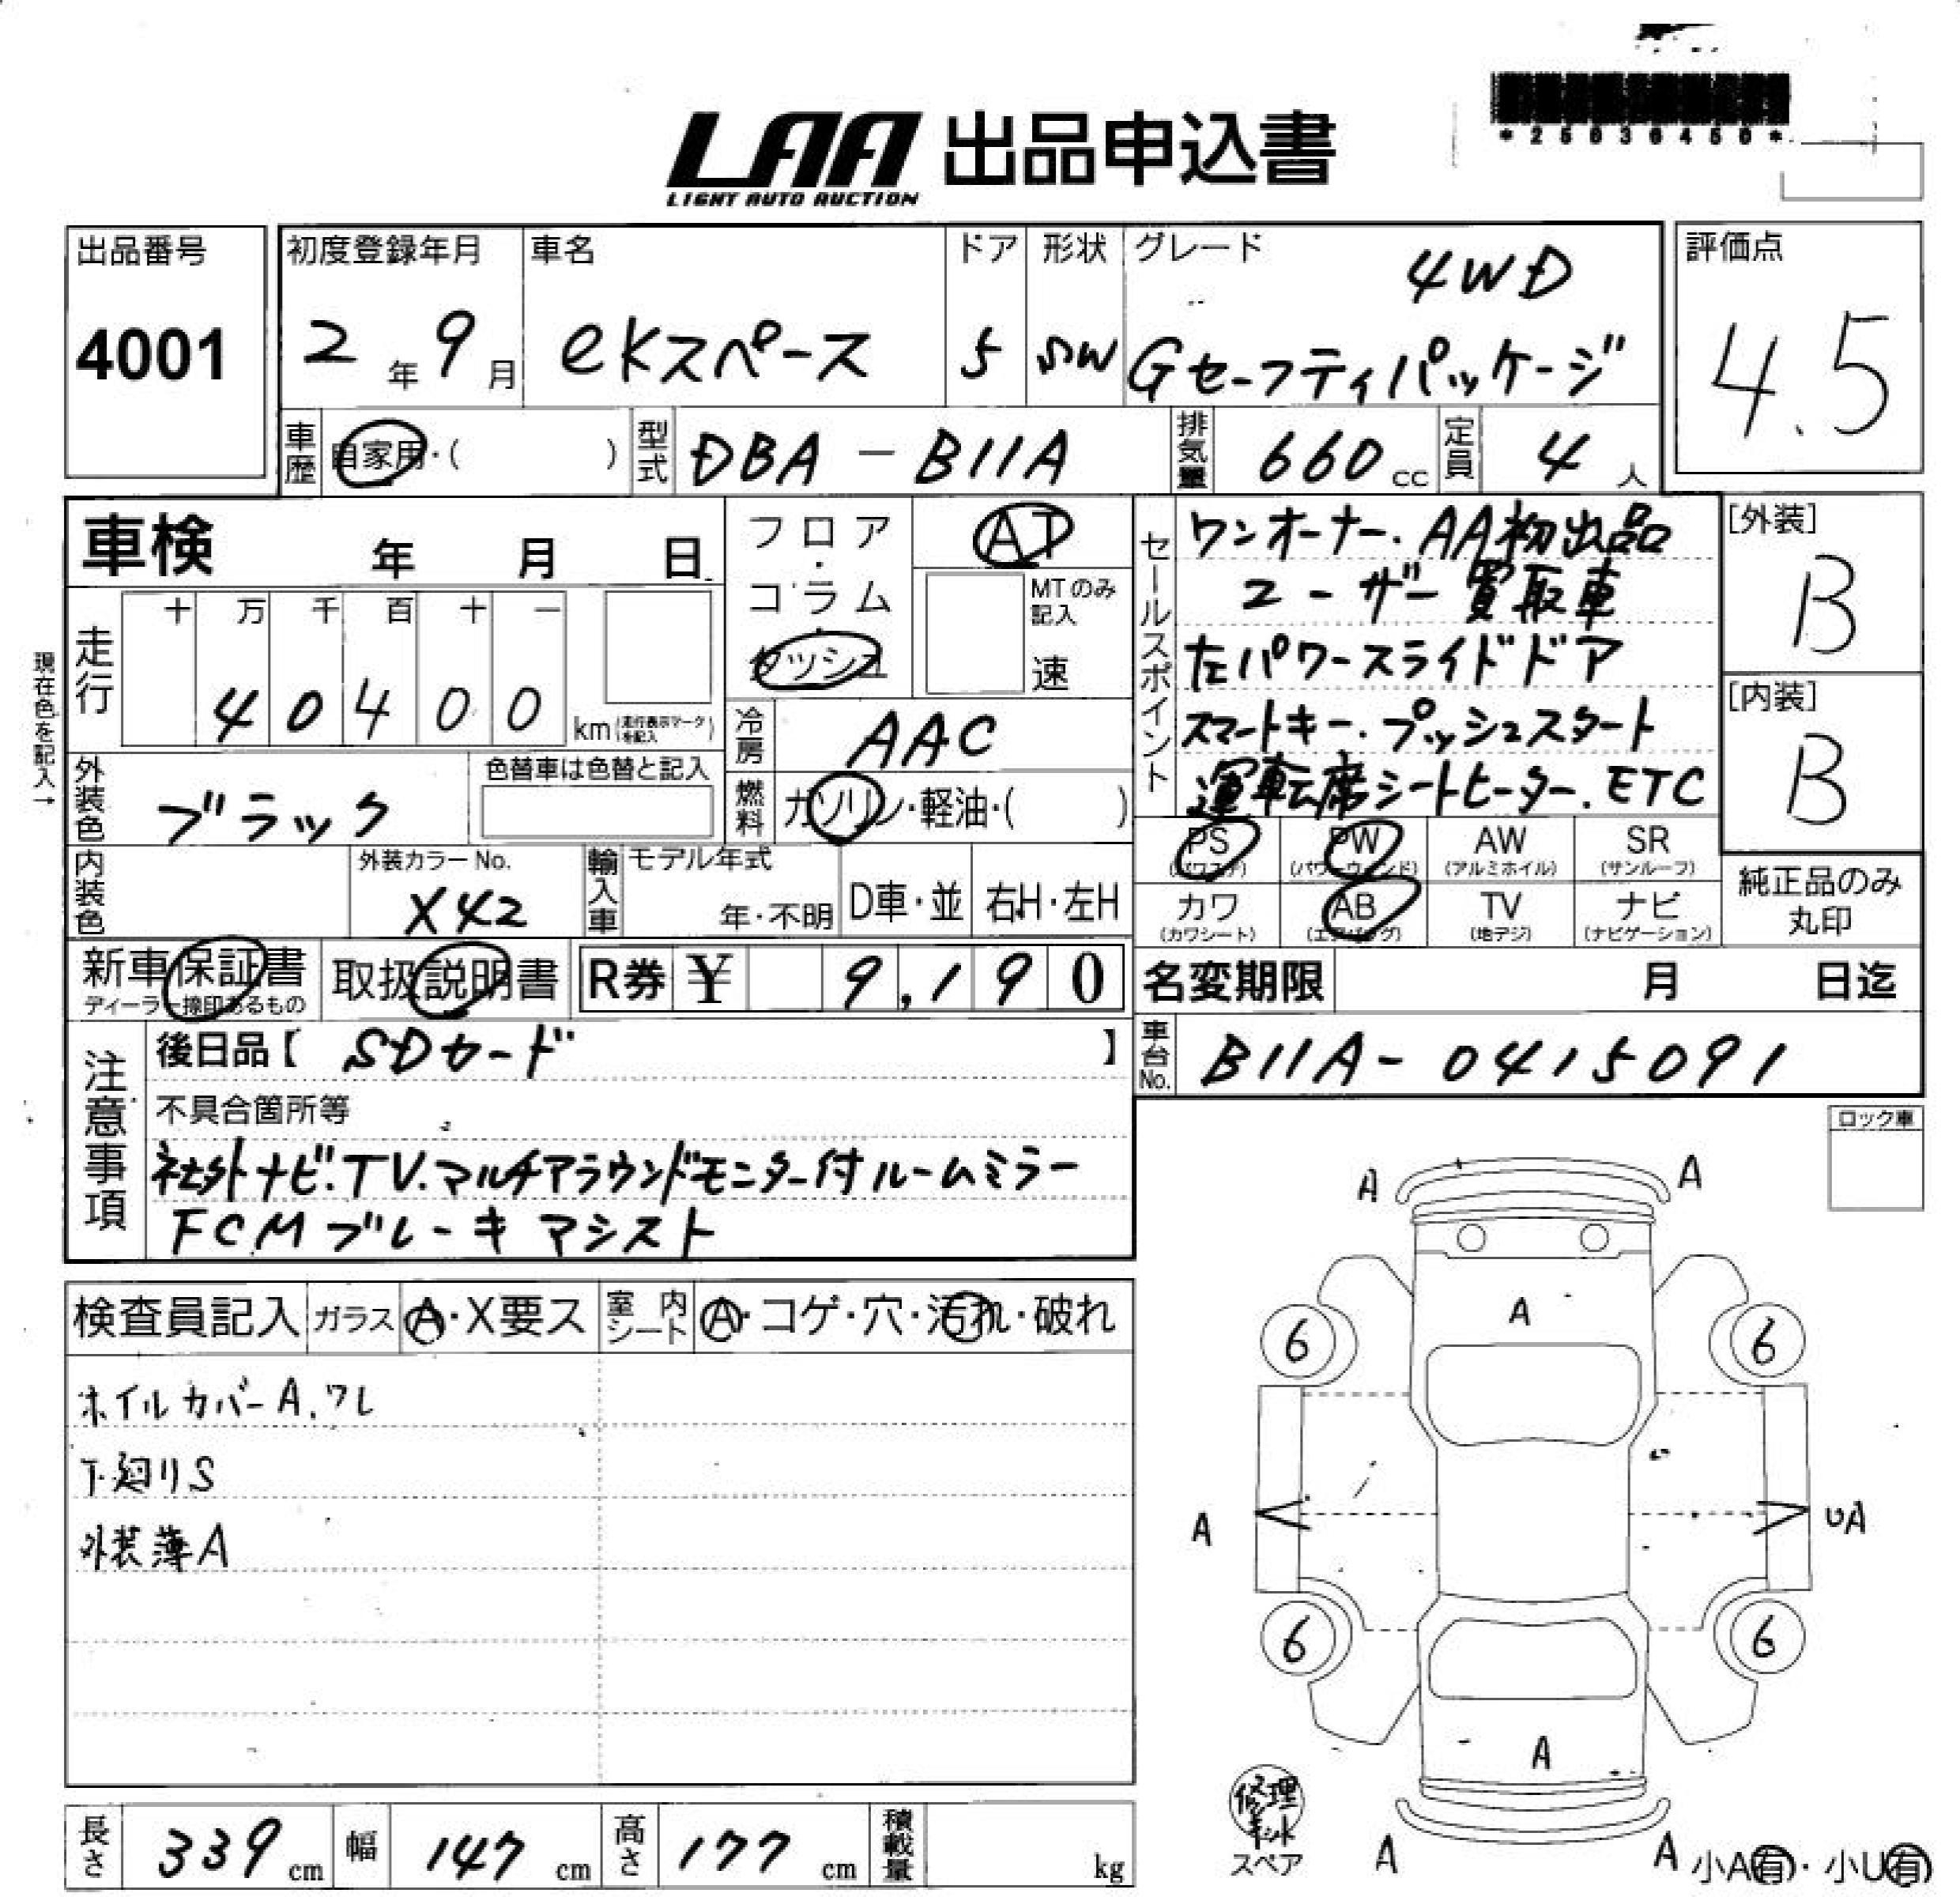 *25030450*
LAA 出品申込書
LIGHT AUTO AUCTION
出品番号
4001
初度登録年月
2年 9月
車名
eKスペース
ドア
5
形状
5W
グレード
4WD
Gセーフティパッケージ
評価点
4.5
車歴
自家用・( )
型式
DBA-B11A
排気量
660cc
定員
4人
車検 年 月 日
フロア・コラム・カッシュ
AT
MTのみ記入
速
セールスポイント
ワンオーナー.AA初出品
ユーザー買取車
左パワースライドドア
スマートキー.プッシュスタート
運転席シートヒーター.ETC
[外装]
B
[内装]
B
現在色を記入→
走行
十 万 千 百 十 一
4 0 4 0 0
km(走行表示マークを記入)
冷房
AAC
外装色
ブラック
色替車は色替と記入
燃料
ガソリン・軽油・( )
PS PW AW SR
(パワステ) (パワーウィンド) (アルミホイル) (サンルーフ)
カワ AB TV ナビ
(カワシート) (エアバッグ) (地デジ) (ナビゲーション)
純正品のみ
丸印
内装色
外装カラーNo.
X42
輸入車
モデル年式
年・不明
D車・並
右H・左H
新車保証書
ディーラー捺印あるもの
取扱説明書
R券 ¥ 9,190
名変期限 月 日迄
車台No.
B11A-0415091
注意事項
後日品【 SDカード 】
不具合箇所等
社外ナビ.TV.マルチアラウンドモニター付ルームミラー
FCMブレーキアシスト
ロック車
検査員記入
ガラス
A・X要ス
室内シート
A・コゲ・穴・汚れ・破れ
ホイルカバーA.ワレ
下廻りS
外装薄A
A A
A
6 6
A UA
6 6
A
A A
修理キット
スペア
小A有・小U有
長さ 339cm
幅 147cm
高さ 177cm
積載量 kg